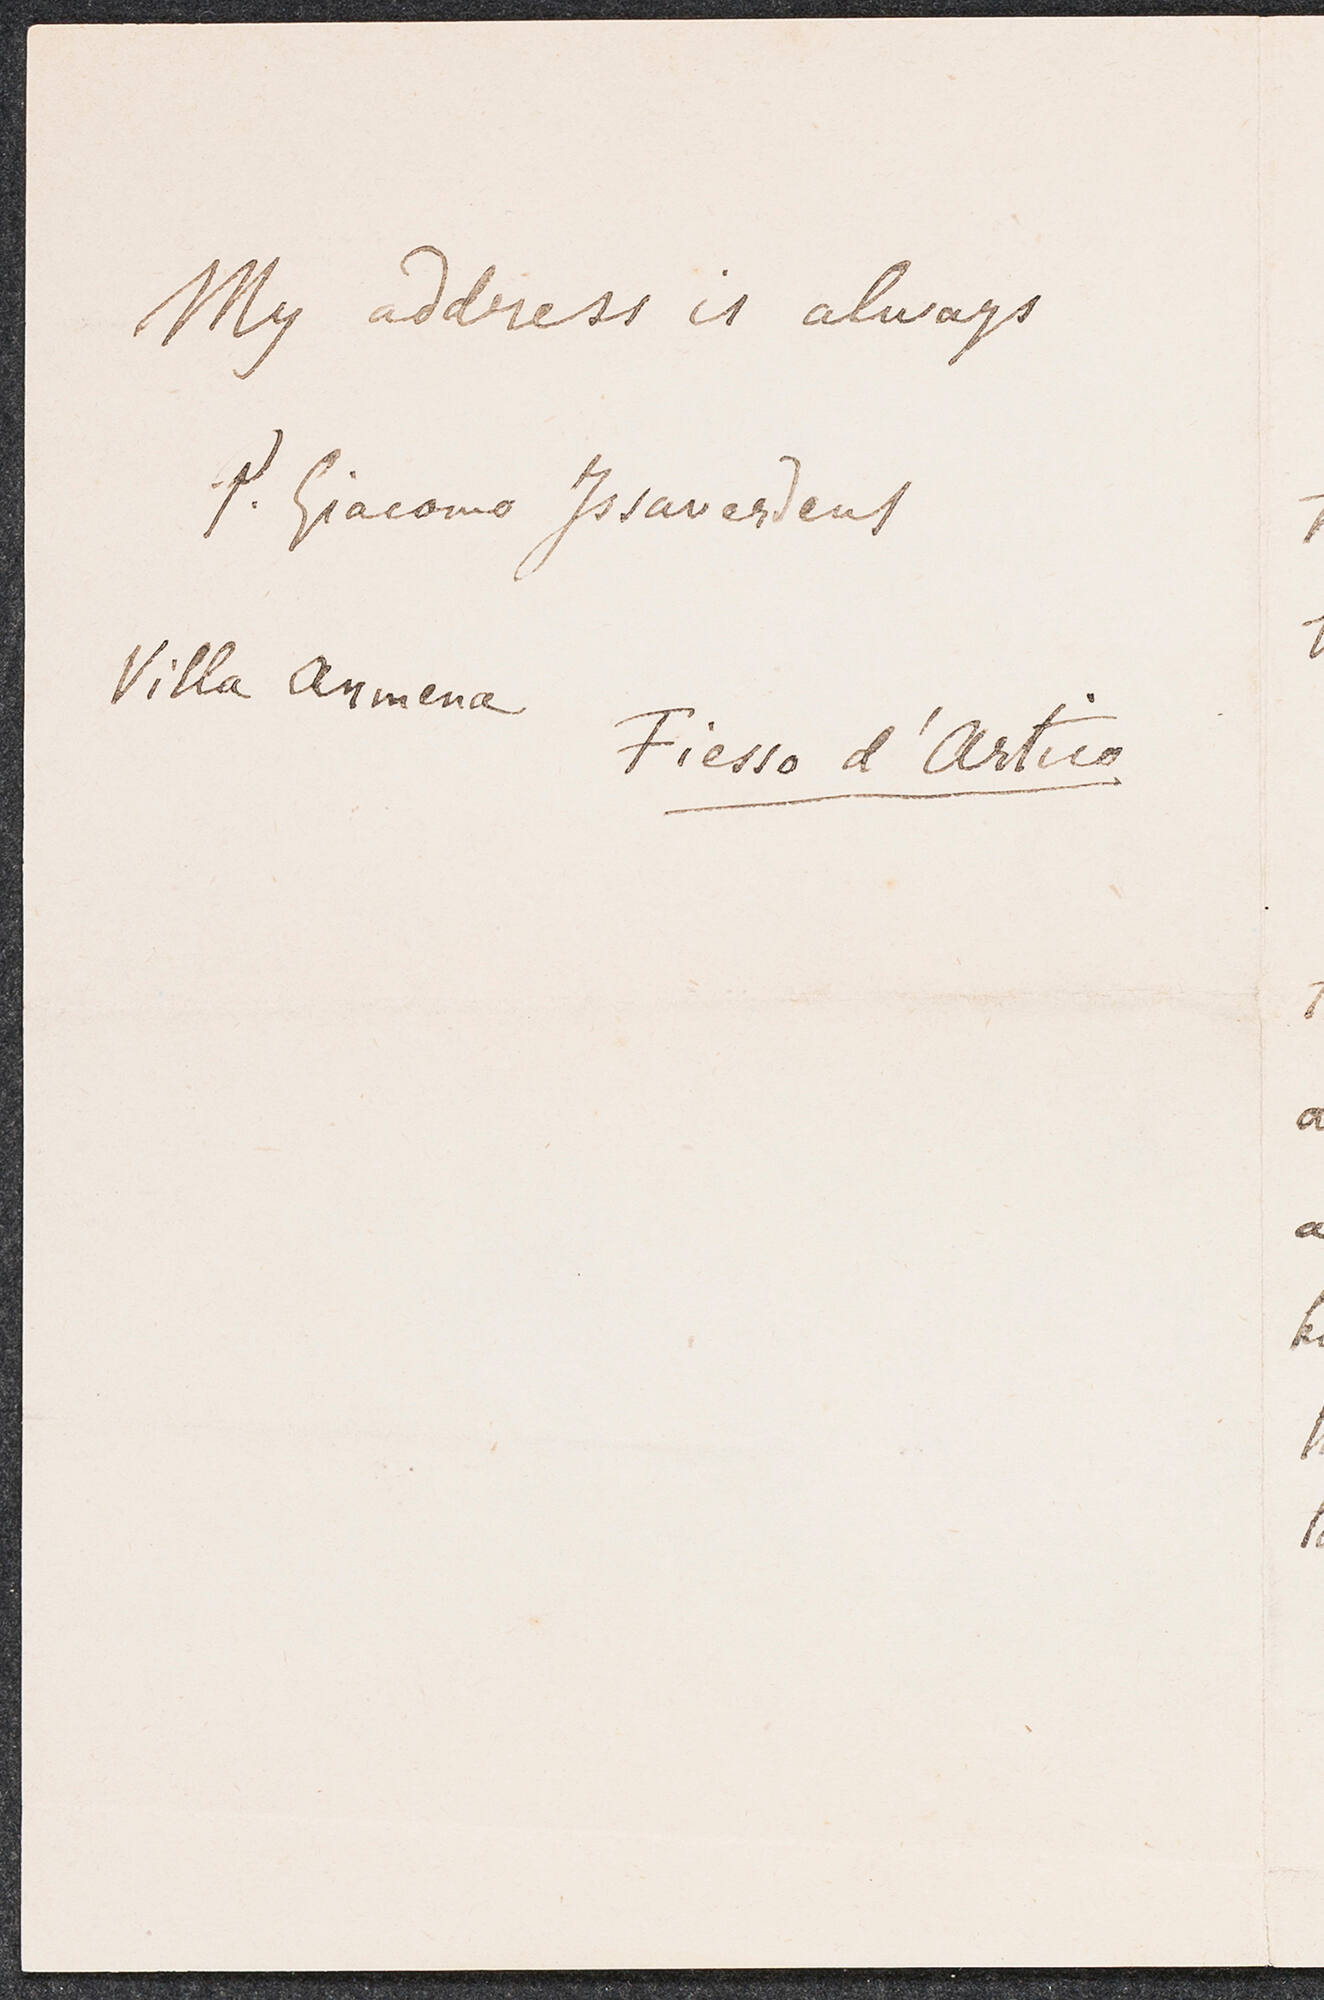 My address is always
P. Giacomo Issaverdens
Villa Armena
Fiesso d'Artico